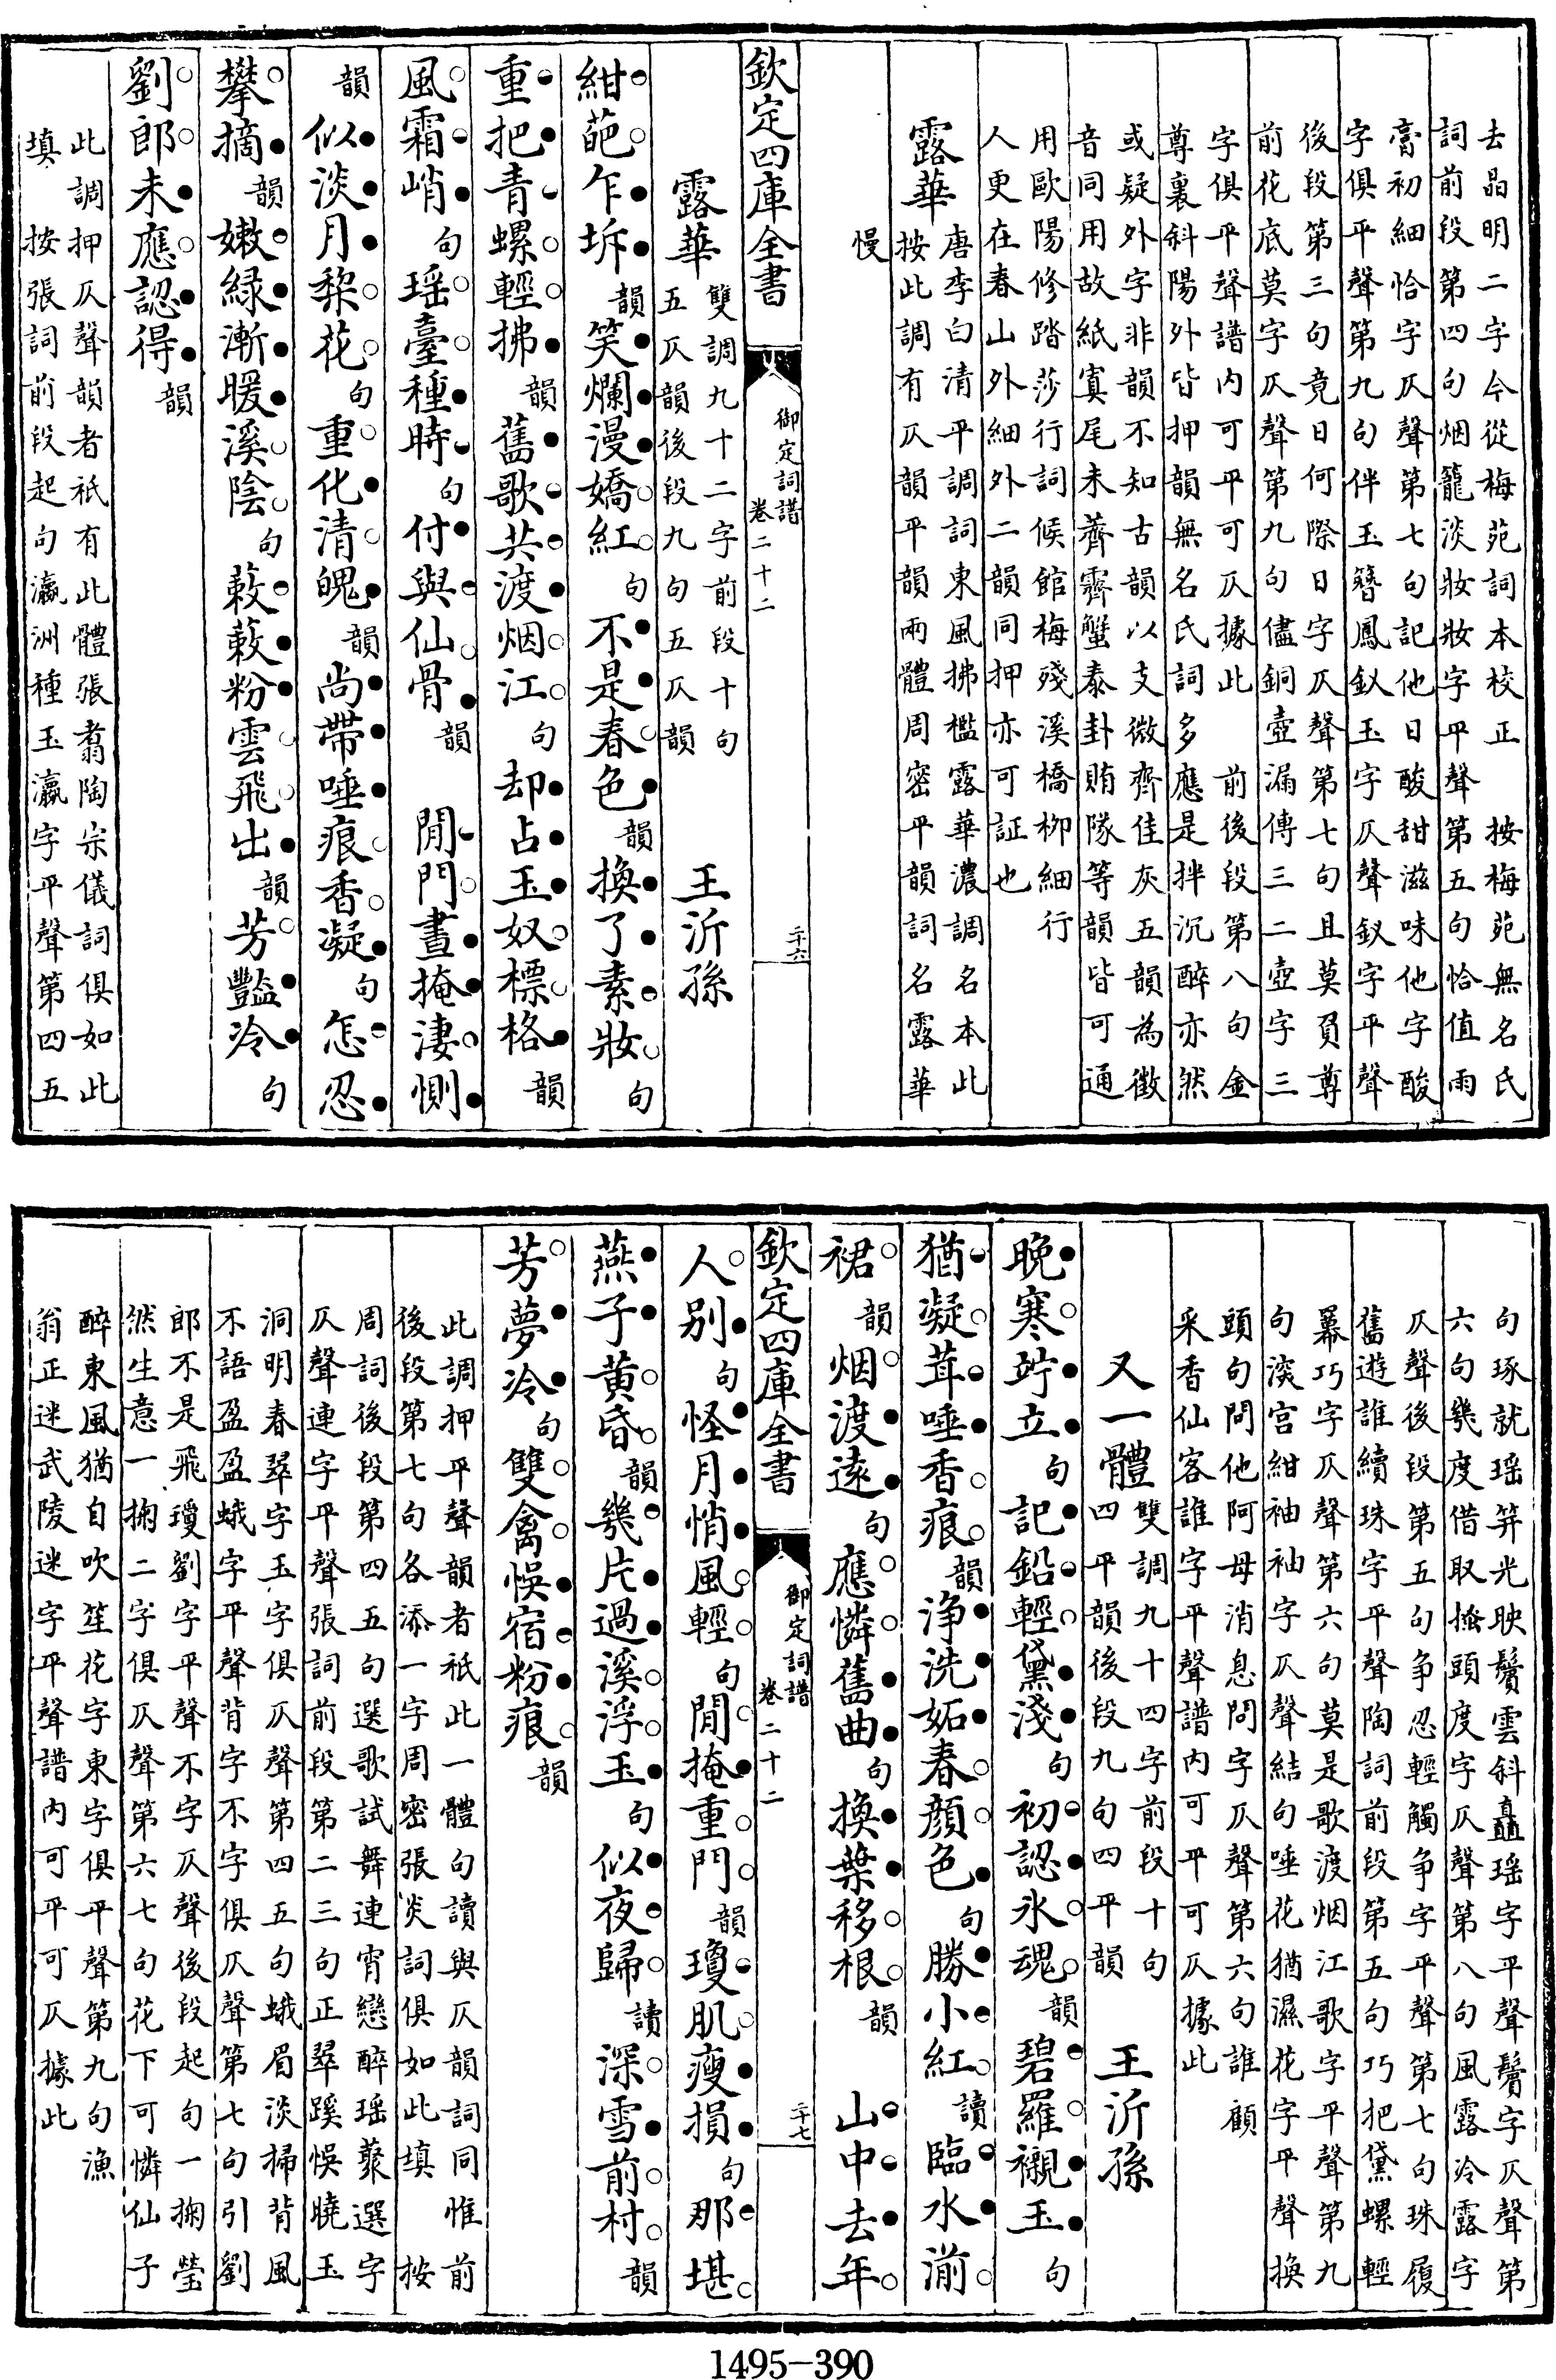 去晶明二字今從梅苑詞本校正　按梅苑無名氏
詞前段第四句烟籠淡妝妝字平聲第五句恰值雨
膏初細恰字仄聲第七句記他日酸甜滋味他字酸
字俱平聲第九句伴玉簪鳳釵玉字仄聲釵字平聲
後段第三句竟日何際日字仄聲第七句且莫負尊
前花底莫字仄聲第九句儘銅壺漏傳三二壺字三
字俱平聲譜內可平可仄據此　前後段第八句金
尊裏斜陽外皆押韻無名氏詞多應是拌沉醉亦然
或疑外字非韻不知古韻以支微齊佳灰五韻為徵
音同用故紙寘尾未薺霽蟹泰卦賄隊等韻皆可通
用歐陽修踏莎行詞候館梅殘溪橋柳細行
人更在春山外細外二韻同押亦可証也
慢
露華
唐李白清平調詞東風拂檻露華濃調名本此
按此調有仄韻平韻兩體周密平韻詞名露華
欽定四庫全書
御定詞譜
卷二十二
二十六
露華
雙調九十二字前段十句
五仄韻後段九句五仄韻
王沂孫
紺葩乍坼韻笑爛漫嬌紅句不是春色韻換了素妝句
重把青螺輕拂韻舊歌共渡烟江句却占玉奴標格韻
風霜峭句瑶臺種時句付與仙骨韻　閒門晝掩淒惻
韻似淡月棃花句重化清魄韻尚帶唾痕香凝句怎忍
攀摘韻嫩緑漸暖溪陰句蔌蔌粉雲飛出韻芳豔冷句
劉郎未應認得韻
此調押仄聲韻者祇有此體張翥陶宗儀詞俱如此
填　按張詞前段起句瀛洲種玉瀛字平聲第四五
句琢就瑶笄光映鬢雲斜矗瑶字平聲鬢字仄聲第
六句幾度借取搔頭度字仄聲第八句風露冷露字
仄聲後段第五句争忍輕觸争字平聲第七句珠履
舊遊誰續珠字平聲陶詞前段第五句巧把黛螺輕
冪巧字仄聲第六句莫是歌渡烟江歌字平聲第九
句淡宫紺袖袖字仄聲結句唾花猶濕花字平聲換
頭句問他阿母消息問字仄聲第六句誰顧
采香仙客誰字平聲譜內可平可仄據此
又一體
雙調九十四字前段十句
四平韻後段九句四平韻
王沂孫
晚寒竚立句記鉛輕黛淺句初認氷魂韻碧羅襯玉句
猶凝茸唾香痕韻淨洗妬春顏色句勝小紅讀臨水湔
裙韻烟渡遠句應憐舊曲句換葉移根韻　山中去年
欽定四庫全書
御定詞譜
卷二十二
二十七
人別句怪月悄風輕句閒掩重門韻瓊肌瘦損句那堪
燕子黄昏韻幾片過溪浮玉句似夜歸讀深雪前村韻
芳夢冷句雙禽悞宿粉痕韻
此調押平聲韻者祇此一體句讀與仄韻詞同惟前
後段第七句各添一字周密張炎詞俱如此填　按
周詞後段第四五句選歌試舞連宵戀醉瑶藂選字
仄聲連字平聲張詞前段第二三句正翠蹊悞曉玉
洞明春翠字玉字俱仄聲第四五句蛾眉淡掃背風
不語盈盈蛾字平聲背字不字俱仄聲第七句引劉
郎不是飛瓊劉字平聲不字仄聲後段起句一掬瑩
然生意一掬二字俱仄聲第六七句花下可憐仙子
醉東風猶自吹笙花字東字俱平聲第九句漁
翁正迷武陵迷字平聲譜內可平可仄據此
1495-390